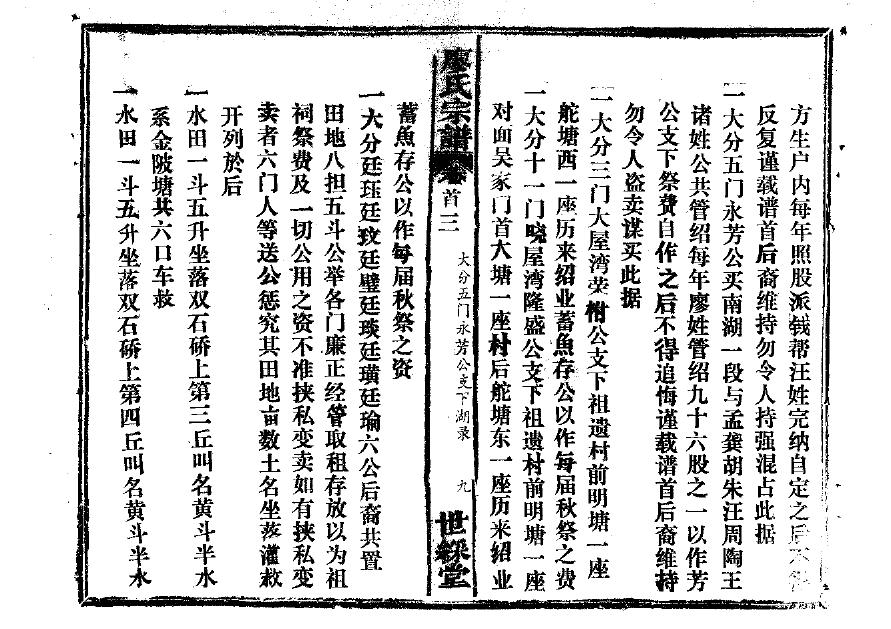 方生户内每年照股派钱帮汪姓完纳自定之后不
反复谨载谱首后裔维持勿令人持强混占此据
一大分五门永芳公买南湖一段与孟龚胡朱汪周陶王
诸姓公共管绍每年廖姓管绍九十六股之一以作芳
公支下祭费自作之后不得追悔谨载谱首后裔维持
勿令人盗卖谋买此据
一大分三门大屋湾荣柑公支下祖遗村前明塘一座
舵塘西一座历来绍业蓄魚存公以作每届秋祭之费
一大分十一门晓屋湾隆盛公支下祖遗村前明塘一座
对面吴家门首大塘一座村后舵塘东一座历来绍业
廖氏宗譜
卷首三
大分五门永芳公支下湖录
九
世綵堂
蓄魚存公以作每届秋祭之资
一大分廷珏廷玟廷璧廷琰廷璜廷瑜六公后裔共置
田地八担五斗公举各门廉正经管取租存放以为祖
祠祭费及一切公用之资不准挟私变卖如有挟私变
卖者六门人等送公惩究其田地亩数土名坐落灌救
开列於后
一水田一斗五升坐落双石硚上第三丘叫名黄斗半水
系金陂塘其六口车救
一水田一斗五升坐落双石硚上第四丘叫名黄斗半水